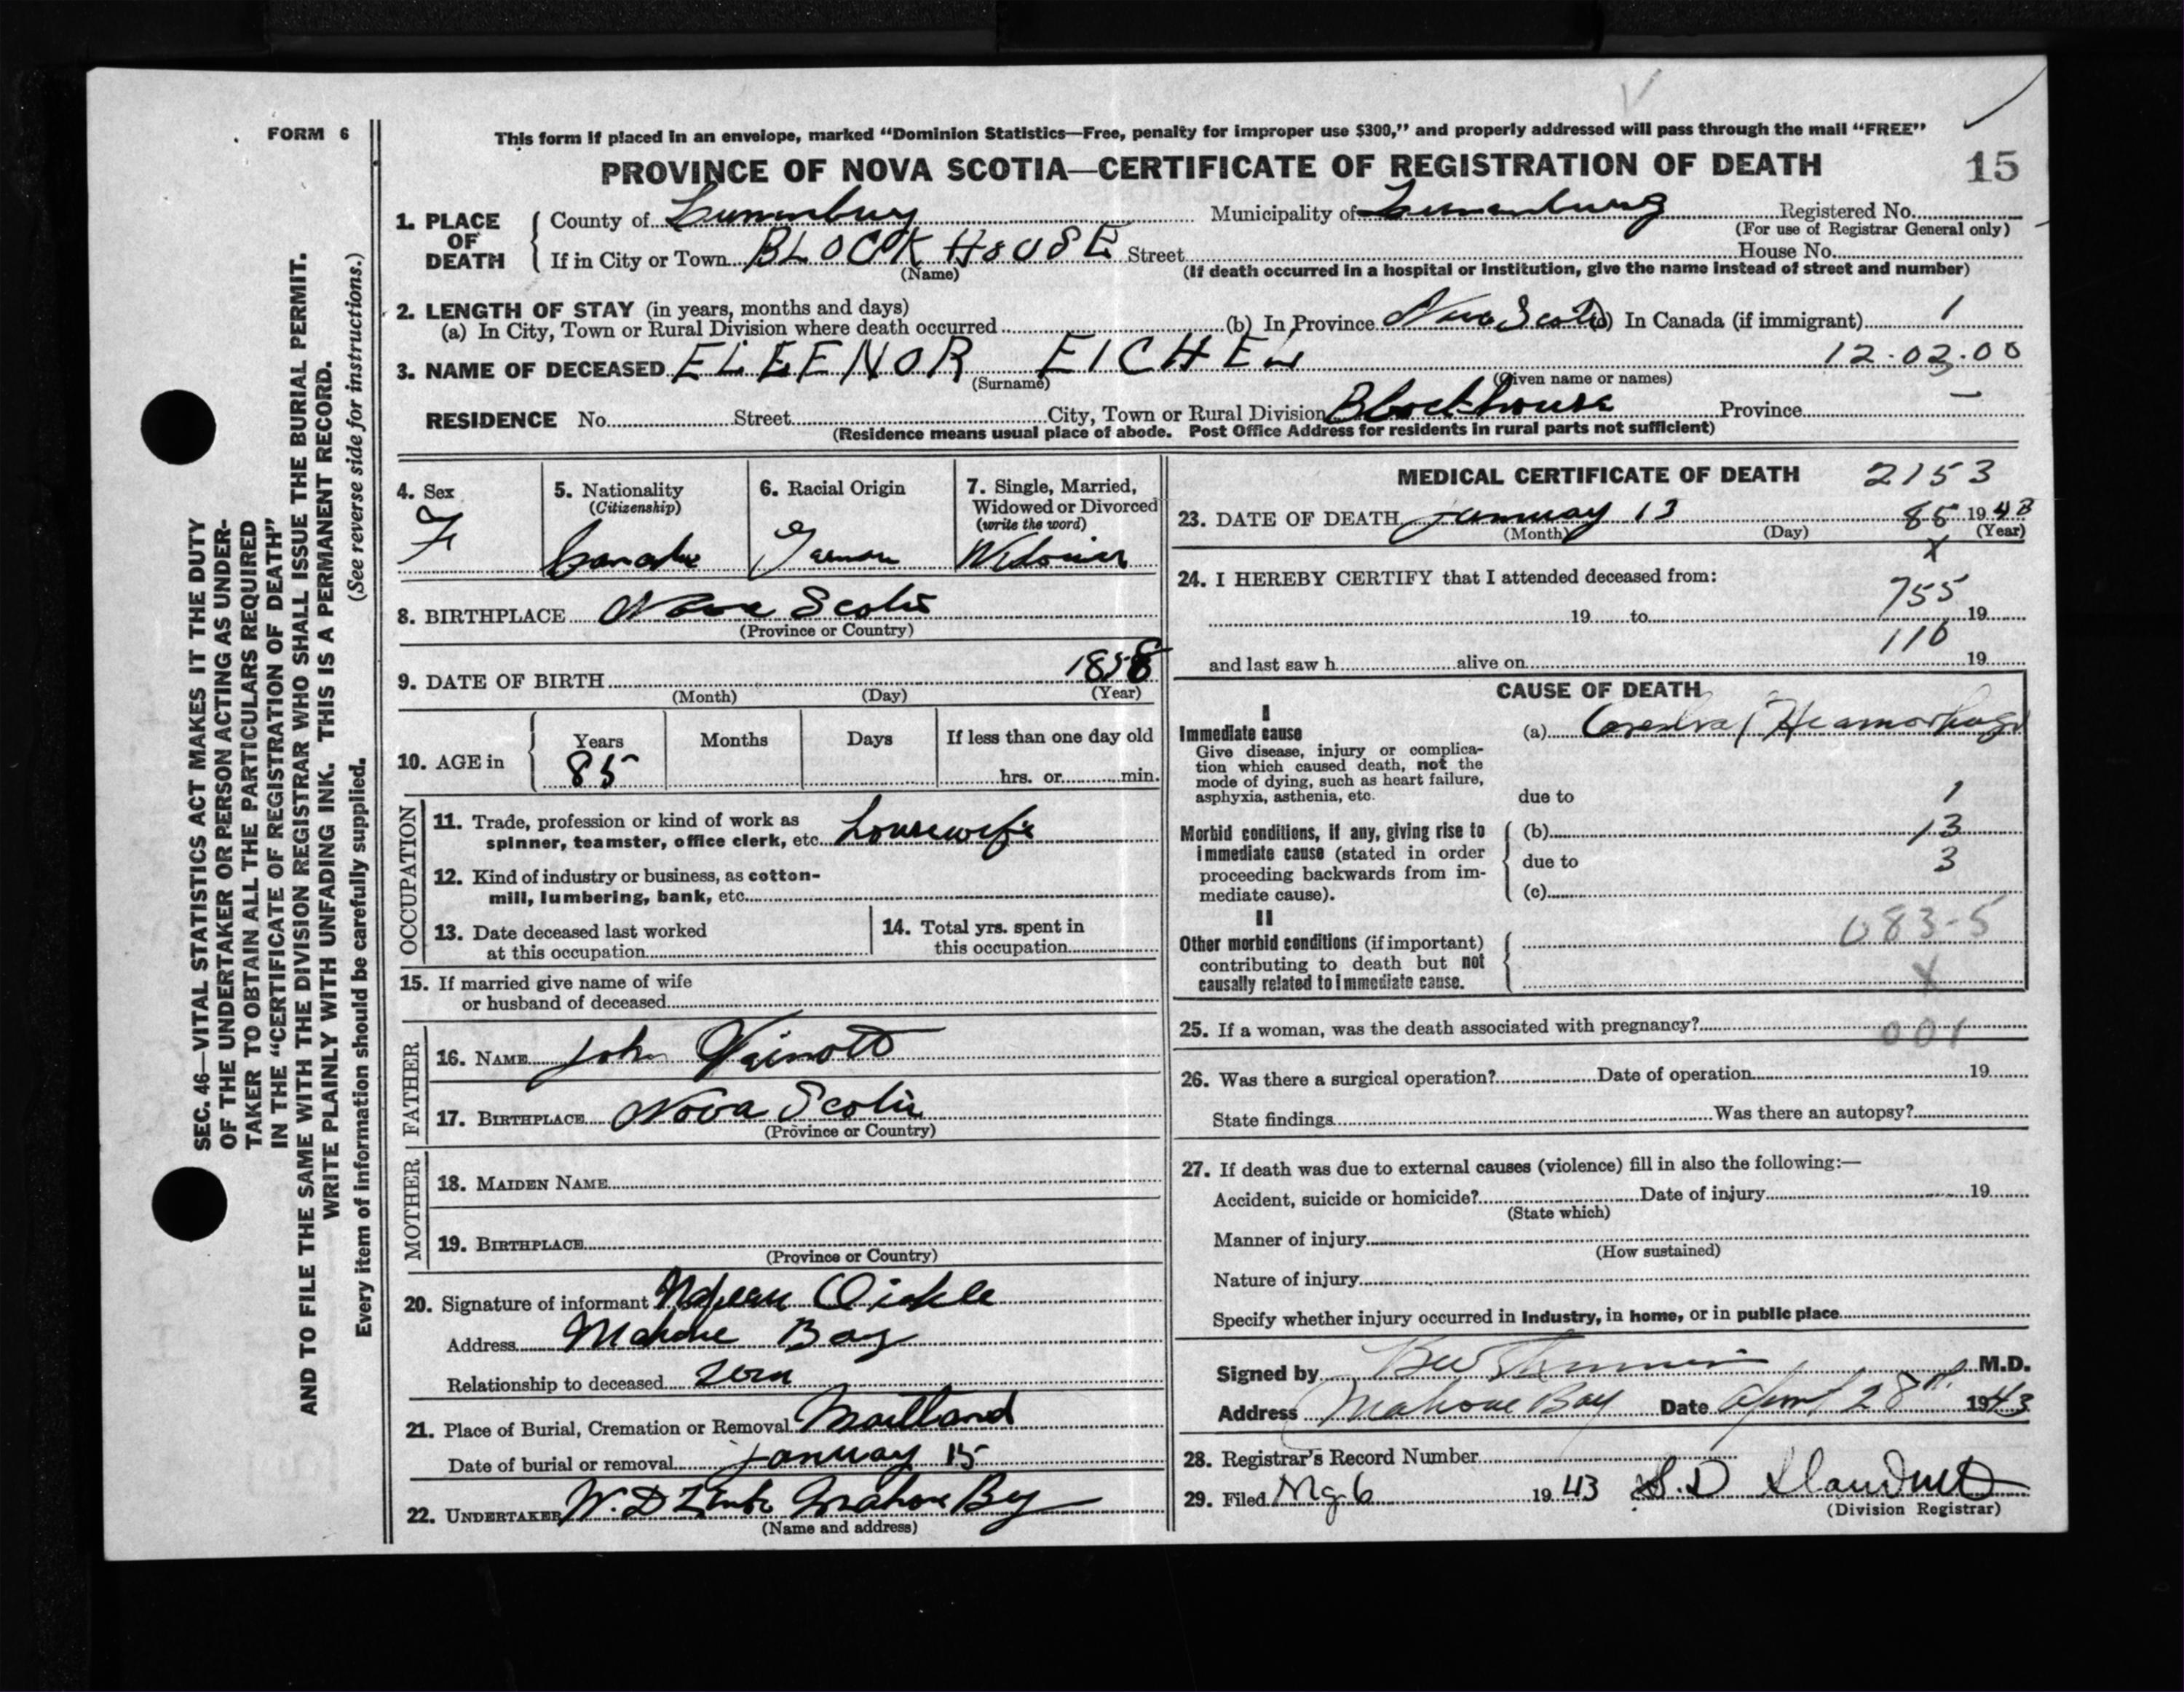 FORM 6
This form if placed in an envelope, marked “Dominion Statistics—Free, penalty for improper use $300,” and properly addressed will pass through the mail “FREE”
PROVINCE OF NOVA SCOTIA—CERTIFICATE OF REGISTRATION OF DEATH
15
1. PLACE OF DEATH
County of Lunenburg Municipality of Lunenburg Registered No.
(For use of Registrar General only)
If in City or Town BLOCK HOUSE Street House No.
(Name) (If death occurred in a hospital or institution, give the name instead of street and number)
2. LENGTH OF STAY (in years, months and days)
(a) In City, Town or Rural Division where death occurred (b) In Province Nova Scotia (c) In Canada (if immigrant) 1
3. NAME OF DECEASED ELEENOR EICHEL 12.02.00
(Surname) (Given name or names)
RESIDENCE No. Street City, Town or Rural Division Blockhouse Province —
(Residence means usual place of abode. Post Office Address for residents in rural parts not sufficient)
4. Sex
F
5. Nationality
(Citizenship)
6. Racial Origin
German
7. Single, Married,
Widowed or Divorced
(write the word)
8. BIRTHPLACE Nova Scotia
(Province or Country)
9. DATE OF BIRTH 1858
(Month) (Day) (Year)
10. AGE in
Years Months Days If less than one day old
85 hrs. or min.
OCCUPATION
11. Trade, profession or kind of work as
spinner, teamster, office clerk, etc. housewife
12. Kind of industry or business, as cotton-
mill, lumbering, bank, etc.
13. Date deceased last worked
at this occupation
14. Total yrs. spent in
this occupation
15. If married give name of wife
or husband of deceased
FATHER
16. NAME John Veinott
17. BIRTHPLACE Nova Scotia
(Province or Country)
MOTHER
18. MAIDEN NAME
19. BIRTHPLACE
(Province or Country)
20. Signature of informant Oickle
Address Mahone Bay
Relationship to deceased
21. Place of Burial, Cremation or Removal Maitland
Date of burial or removal January 15
22. UNDERTAKER W. D. Mahone Bay
(Name and address)
MEDICAL CERTIFICATE OF DEATH 2153
23. DATE OF DEATH January 13 85 1943
(Month) (Day) (Year)
X
24. I HEREBY CERTIFY that I attended deceased from:
755
19 to 19
116
and last saw h alive on 19
CAUSE OF DEATH
I
Immediate cause
Give disease, injury or complica-
tion which caused death, not the
mode of dying, such as heart failure,
asphyxia, asthenia, etc.
(a) Cerebral Heamorhage
due to 1
Morbid conditions, if any, giving rise to
immediate cause (stated in order
proceeding backwards from im-
mediate cause).
(b) 13
due to 3
(c)
II
083-5
Other morbid conditions (if important)
contributing to death but not
causally related to immediate cause.
X
25. If a woman, was the death associated with pregnancy?
001
26. Was there a surgical operation? Date of operation 19
State findings Was there an autopsy?
27. If death was due to external causes (violence) fill in also the following:—
Accident, suicide or homicide? Date of injury 19
(State which)
Manner of injury
(How sustained)
Nature of injury
Specify whether injury occurred in Industry, in home, or in public place
Signed by M.D.
Address Mahone Bay Date April 28th 1943
28. Registrar's Record Number
29. Filed 6 1943 S. D.
(Division Registrar)
SEC. 46—VITAL STATISTICS ACT MAKES IT THE DUTY
OF THE UNDERTAKER OR PERSON ACTING AS UNDER-
TAKER TO OBTAIN ALL THE PARTICULARS REQUIRED
IN THE “CERTIFICATE OF REGISTRATION OF DEATH”
AND TO FILE THE SAME WITH THE DIVISION REGISTRAR WHO SHALL ISSUE THE BURIAL PERMIT.
WRITE PLAINLY WITH UNFADING INK. THIS IS A PERMANENT RECORD.
Every item of information should be carefully supplied. (See reverse side for instructions.)